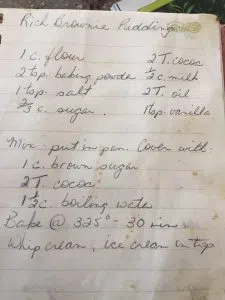 Rich Brownie Pudding
1 c. flour 2 T. cocoa
2 tsp. baking powder ½ c. milk
1 tsp. salt 2 T. oil
⅔ c. sugar. 1 tsp. vanilla
Mix - put in pan. Cover with:
1 c. brown sugar
2 T. cocoa
1 ½ c. boiling water
Bake @ 325° - 30 min
Whip cream, ice cream on top